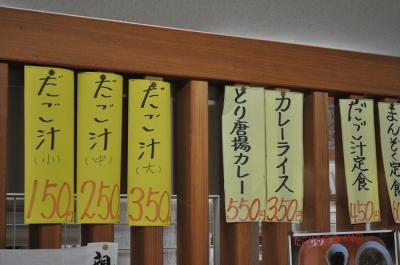 だご汁
(小)
150円
だご汁
(中)
250
だご汁
(大)
350
とり唐揚カレー
550円
カレーライス
350円
だご汁定食
450円
まんぞく定食